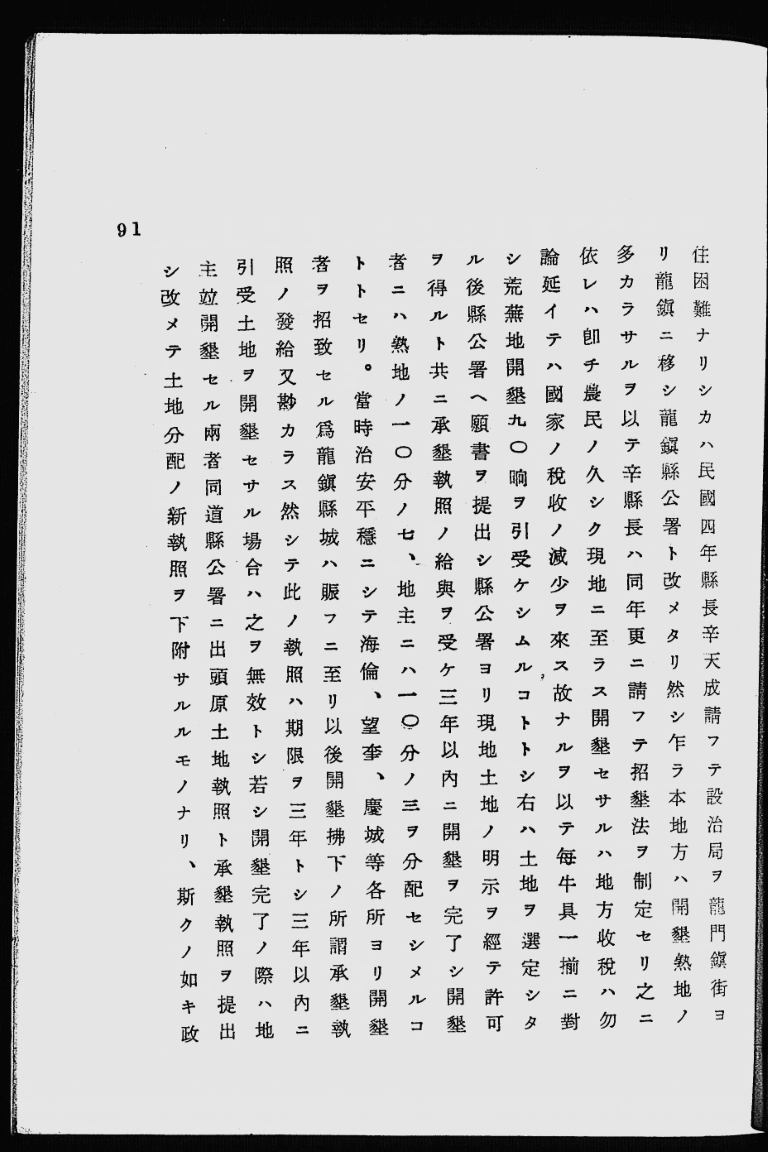 住困難ナリシカハ民國四年縣長辛天成請フテ設治局ヲ龍門鎭街ヨ
リ龍鎭ニ移シ龍鎭縣公署ト改メタリ然シ乍ラ本地方ハ開墾熟地ノ
多カラサルヲ以テ辛縣長ハ同年更ニ請フテ招墾法ヲ制定セリ之ニ
依レハ卽チ農民ノ久シク現地ニ至ラス開墾セサルハ地方收稅ハ勿
論延イテハ國家ノ稅收ノ減少ヲ來ス故ナルヲ以テ每牛具一揃ニ對
シ荒蕪地開墾九〇晌ヲ引受ケシムルコトトシ右ハ土地ヲ選定シタ
ル後縣公署ヘ願書ヲ提出シ縣公署ヨリ現地土地ノ明示ヲ經テ許可
ヲ得ルト共ニ承墾執照ノ給與ヲ受ケ三年以內ニ開墾ヲ完了シ開墾
者ニハ熟地ノ一〇分ノ七、地主ニハ一〇分ノ三ヲ分配セシメルコ
トトセリ。當時治安平穩ニシテ海倫、望奎、慶城等各所ヨリ開墾
者ヲ招致セル爲龍鎭縣城ハ賑フニ至リ以後開墾拂下ノ所謂承墾執
照ノ發給又尠カラス然シテ此ノ執照ハ期限ヲ三年トシ三年以內ニ
引受土地ヲ開墾セサル場合ハ之ヲ無效トシ若シ開墾完了ノ際ハ地
主竝開墾セル兩者同道縣公署ニ出頭原土地執照ト承墾執照ヲ提出
シ改メテ土地分配ノ新執照ヲ下附サルルモノナリ、斯クノ如キ政
91